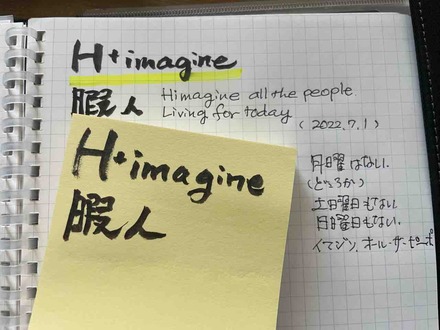 H+imagine
暇人
Himagine all the people
Living for today
(2022.7.1)
月曜はない。
(どころか)
土曜日もない
日曜日もない.
イマジン、オール・ザ・ピーポ
H+imagine
暇人